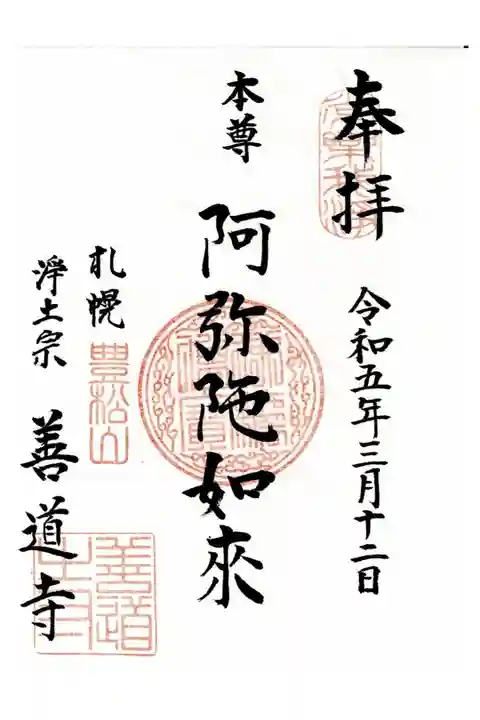 奉拝
令和五年三月十二日
本尊
阿弥陀如來
札幌
豊松山
浄土宗
善道寺